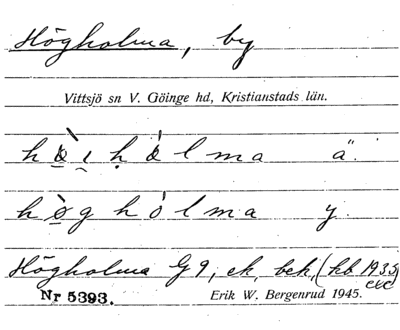 Högholma, by
Vittsjö sn V. Göinge hd, Kristianstads län.
hòı̯ḥòlma ä.
hòghólma y.
Högholma G 9, ek, bek, (kb 1935 etc)
Nr 5393. Erik W. Bergenrud 1945.